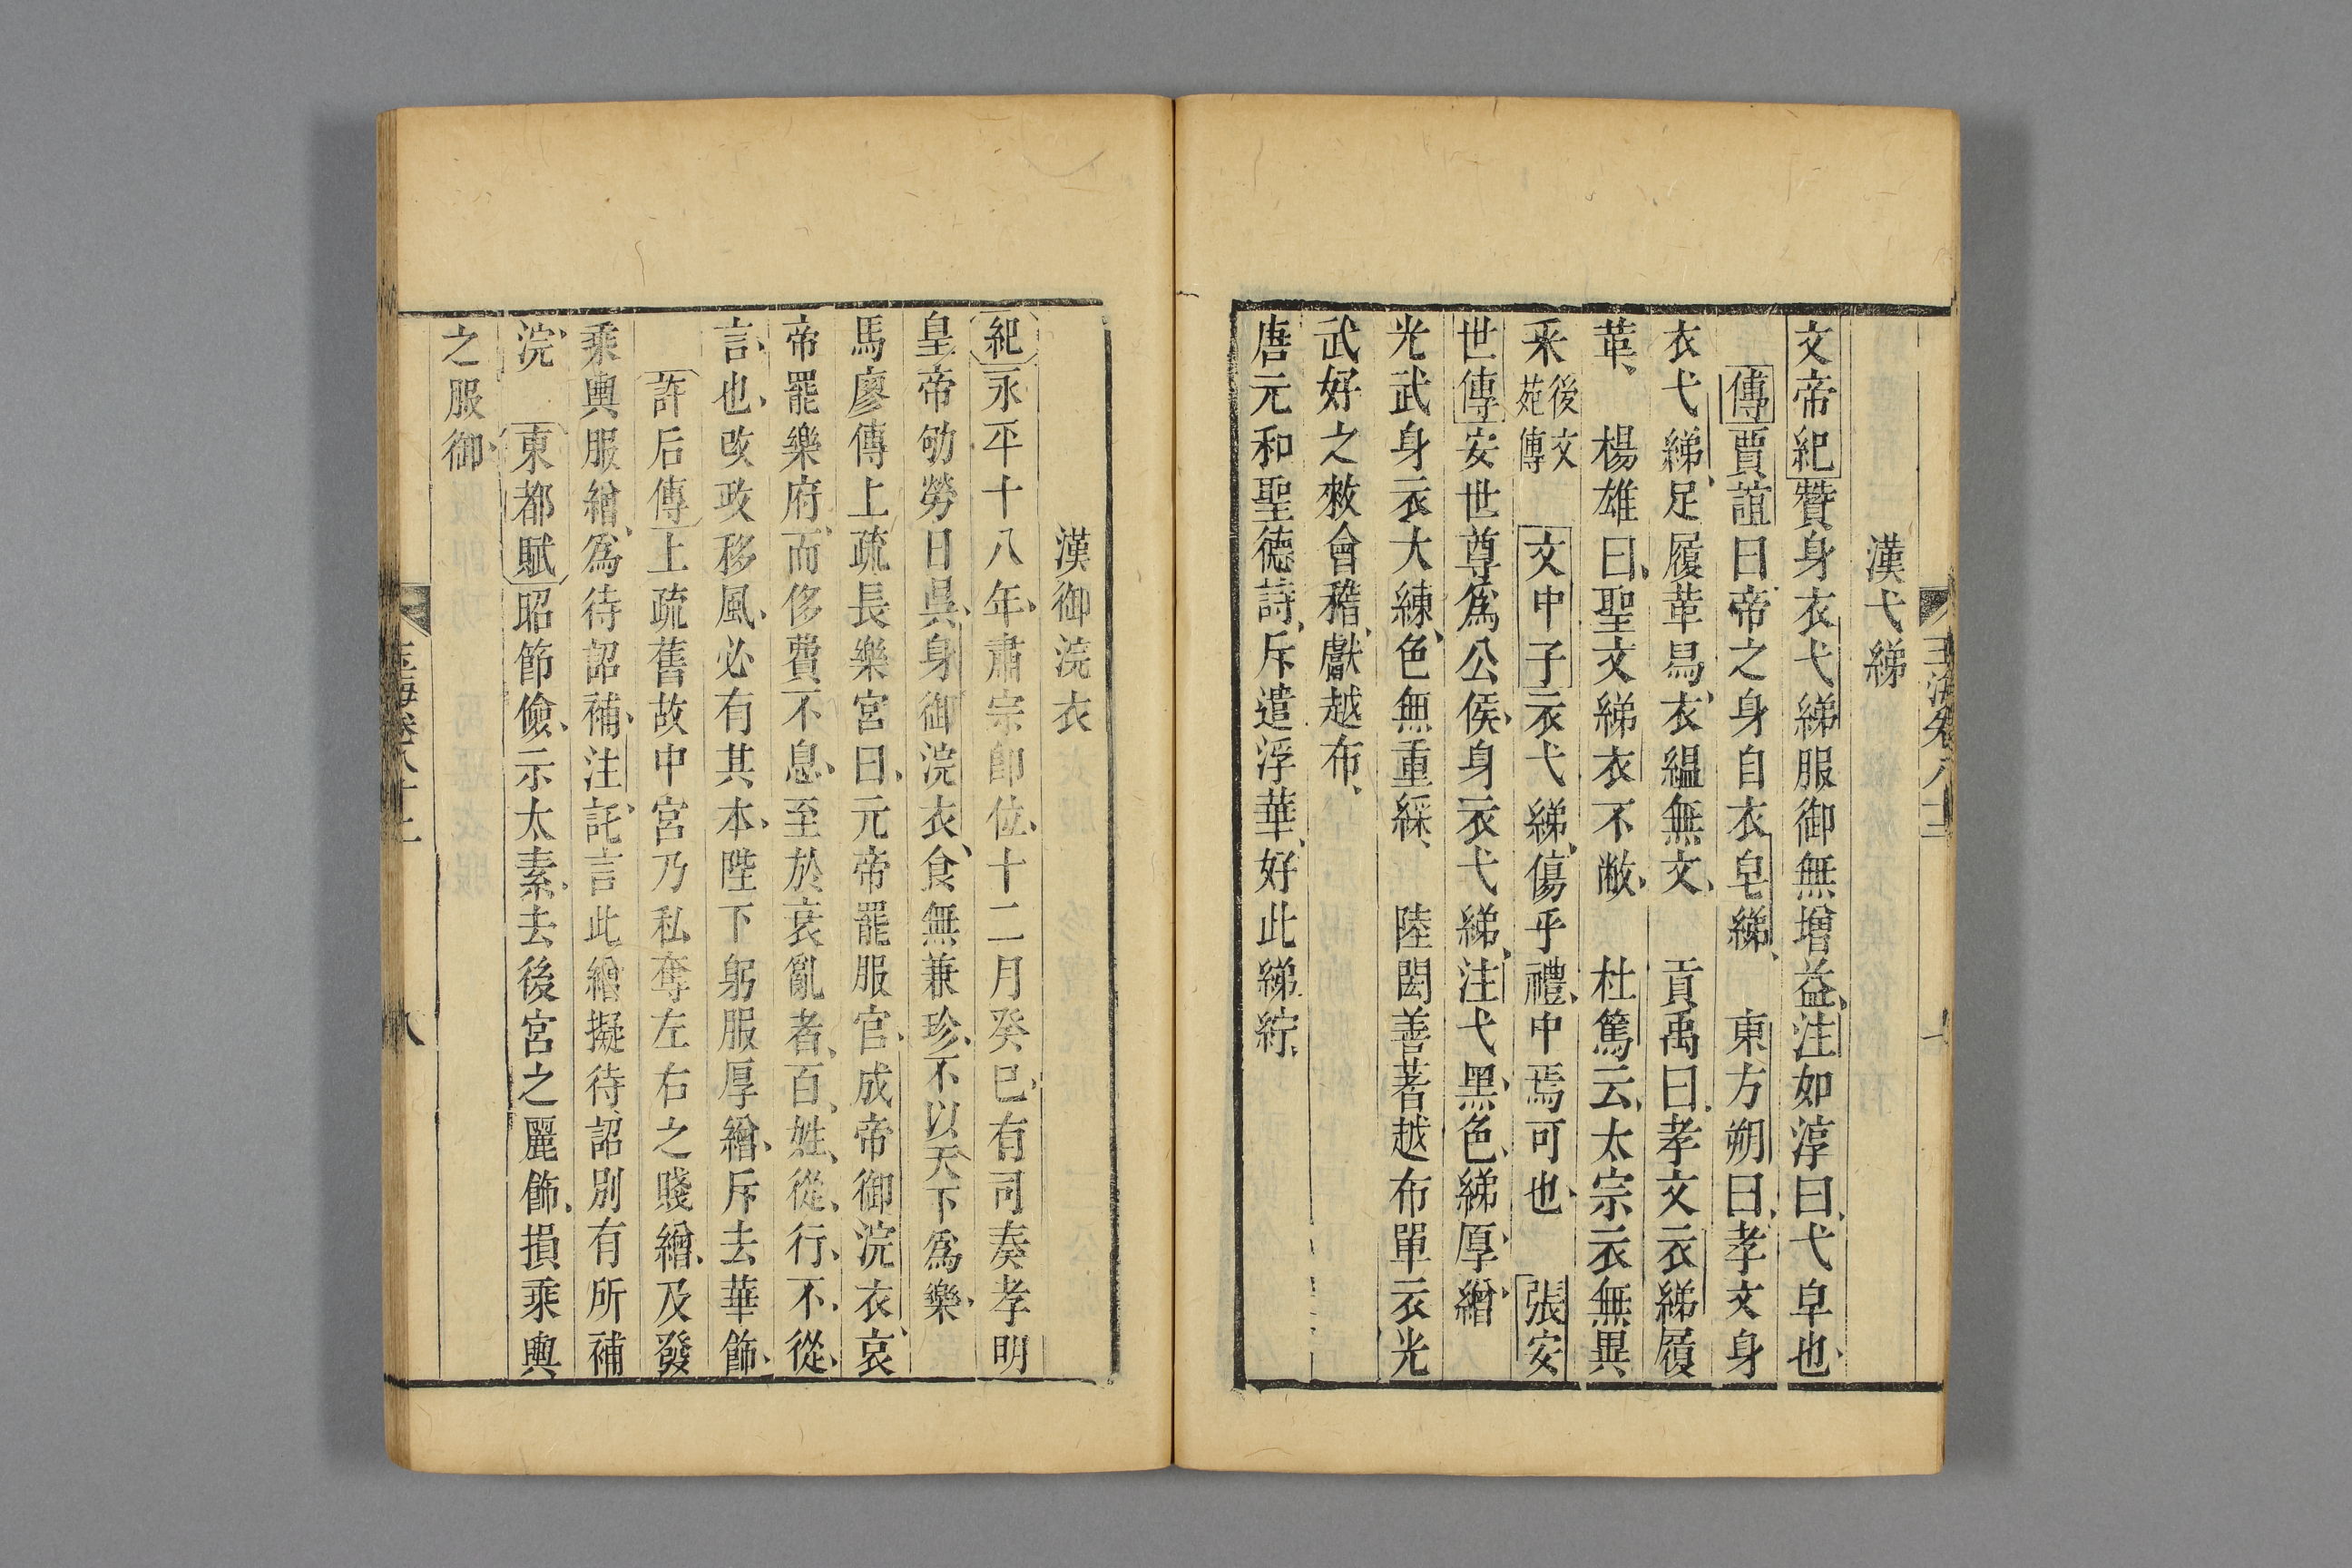 漢弋綈
文帝紀贊身衣弋綈服御無增益注如淳曰弋皁也
傳賈誼曰帝之身自衣皂綈　東方朔曰孝文身
衣弋綈足履革舄衣緼無文　貢禹曰孝文衣綈履
革　楊雄曰聖文綈衣不敝　杜篤云太宗衣無異
采後文苑傳　文中子衣弋綈傷乎禮中焉可也　張安
世傳安世尊爲公侯身衣弋綈注弋黑色綈厚繒
光武身衣大練色無重綵　陸閎善著越布單衣光
武好之敕會稽獻越布
唐元和聖德詩斥遣浮華好此綈紵
漢御浣衣
紀永平十八年肅宗卽位十二月癸巳有司奏孝明
皇帝劬勞日昃身御浣衣食無兼珍不以天下爲樂
馬廖傳上疏長樂宮曰元帝罷服官成帝御浣衣哀
帝罷樂府而侈費不息至於衰亂者百姓從行不從
言也改政移風必有其本陛下躬服厚繒斥去華飾
許后傳上疏舊故中宮乃私奪左右之賤繒及發
乘輿服繒爲待詔補注託言此繒擬待詔別有所補
浣　東都賦昭節儉示太素去後宮之麗飾損乘輿
之服御
玉海卷八十二　八